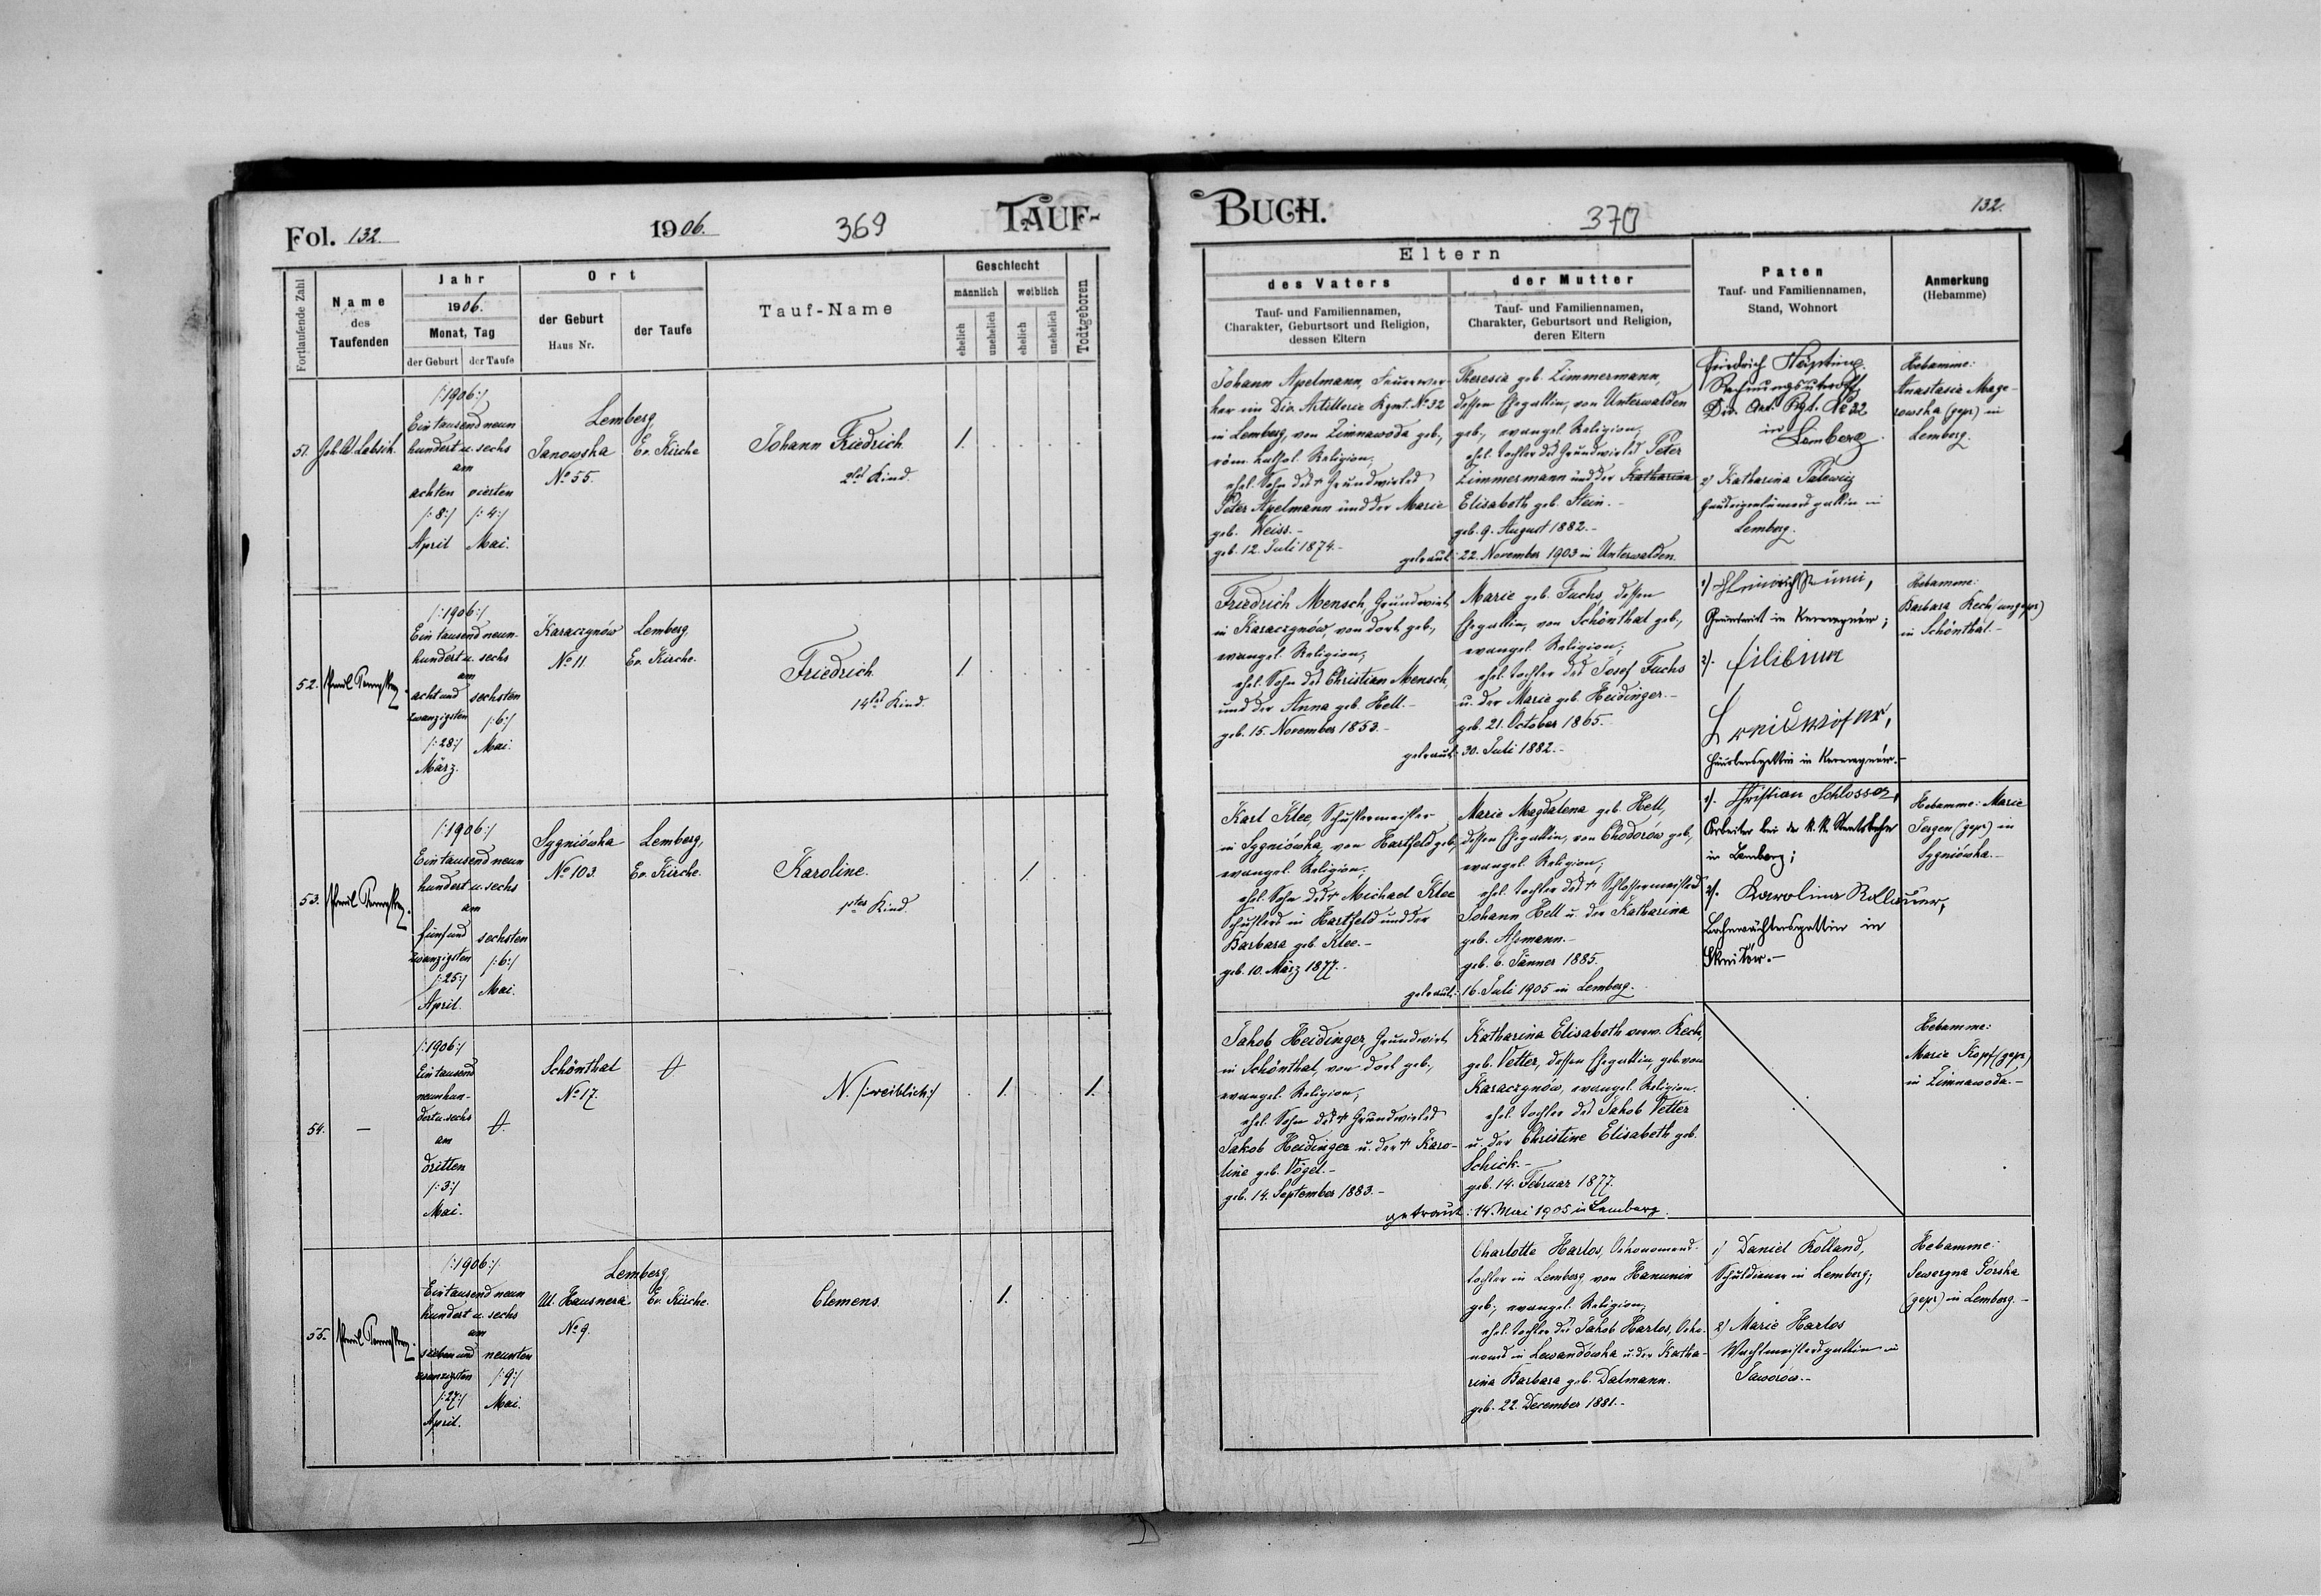 Fol. 132.
1906.
369
TAUF-
Fortlaufende Zahl
Name
des
Taufenden
Jahr
1906.
Monat, Tag
der Geburt
der Taufe
Ort
der Geburt
Haus Nr.
der Taufe
Tauf-Name
Geschlecht
männlich
weiblich
ehelich
unehelich
ehelich
unehelich
Todtgeboren
51.
/:1906:/
Ein tausend neun
hundert u. sechs
am
achten
/:8:/
April
vierten
/:4:/
Mai.
Lemberg
Janowska
No 55.
Ev. Kirche
Johann Friedrich
2tes Kind.
1.
52.
/:1906:/
Ein tausend neun-
hundert u. sechs
am
acht und
zwanzigsten
/:28:/
März.
sechsten
/:6:/
Mai.
Karaczynów
No 11.
Lemberg
Ev. Kirche.
Friedrich
14tes Kind.
1.
53.
/:1906:/
Ein tausend neun
hundert u. sechs
am
fünf und
zwanzigsten
/:25:/
April.
sechsten
/:6:/
Mai.
Sygniówka
No 103.
Lemberg,
Ev. Kirche.
Karoline.
1tes Kind.
1.
54.
—
/:1906:/
Ein tausend
neunhun-
dert u. sechs
am
dritten
/:3:/
Mai.
Schönthal
No 17.
N. /:weiblich:/
1.
1.
55.
/:1906:/
Ein tausend neun
hundert u. sechs
am
sieben und
zwanzigsten
/:27:/
April.
neunten
/:9:/
Mai.
Lemberg,
Ul. Hausnera
No 9.
Ev. Kirche.
Clemens.
1.
BUCH.
370
132.
Eltern
des Vaters
Tauf- und Familiennamen,
Charakter, Geburtsort und Religion,
dessen Eltern
der Mutter
Tauf- und Familiennamen,
Charakter, Geburtsort und Religion,
deren Eltern
Paten
Tauf- und Familiennamen,
Stand, Wohnort
Anmerkung
(Hebamme)
Johann Apelmann, Feuerwer-
ker im Div. Artillerie Rgmt. No 32
in Lemberg, von Zimnawoda geb.,
röm. kathol. Religion,
ehel. Sohn des † Grundwirtes
Peter Apelmann und der Marie
geb. Weiss.-
geb. 12. Juli 1874.-
Theresia geb. Zimmermann,
dessen Ehegattin, von Unterwalden
geb., evangel. Religion,
ehel. Tochter des Grundwirtes Peter
Zimmermann und der Katharina
Elisabeth geb. Stein.-
geb. 9. August 1882.-
getraut: 22. November 1903 in Unterwalden.
Friedrich
Div. Art. Rgt. No 32
in
Lemberg.
2) Katharina
in
Lemberg.
Hebamme:
Anastasia Mage-
rowska (gepr) in
Lemberg.
Friedrich Mensch, Grundwirt
in Karaczynów, von dort geb.,
evangel. Religion,
ehel. Sohn des Christian Mensch
und der Anna geb. Hell.-
geb. 15. November 1853.-
Marie geb. Fuchs, dessen
Ehegattin, von Schönthal geb.,
evangel. Religion,
ehel. Tochter des Josef Fuchs
u. der Marie geb. Heidinger.-
geb. 21. October 1865.-
getraut: 30. Juli 1882.-
1)
Grundwirt in Karaczynów;
2).
in Karaczynów.-
Hebamme:
Barbara Kech (ungepr)
in Schönthal.-
Karl Klee, Schustermeister
in Sygniówka, von Hartfeld geb.,
evangel. Religion,
ehel. Sohn des † Michael Klee
Schusters in Hartfeld und der
Barbara geb. Klee.-
geb. 10. März 1877.-
Marie Magdalena geb. Hell,
dessen Ehegattin, von Chodorów geb.,
evangel. Religion;
ehel. Tochter des † Schlossermeisters
Johann Hell u. der Katharina
geb. Assmann.-
geb. 6. Jänner 1885.
getraut: 16. Juli 1905 in Lemberg.
1). Christian Schlosser,
Arbeiter bei der k. k. Staatsbahn
in Lemberg;
2). Karolina
Bahnwächtersgattin in
Hebamme: Marie
Jergen (gepr) in
Sygniówka.-
Jakob Heidinger, Grundwirt
in Schönthal, von dort geb.,
evangel. Religion,
ehel. Sohn des † Grundwirtes
Jakob Heidinger u. der † Karo-
line geb. Vogel.-
geb. 14. September 1883.-
Katharina Elisabeth verw. Kech,
geb. Vetter, dessen Ehegattin, geb. von
Karaczynów, evangel. Religion.
ehel. Tochter des Jakob Vetter
u. der Christine Elisabeth geb.
Schick.-
geb. 14. Februar 1877.
getraut: 14. Mai 1905 in Lemberg.
Hebamme:
Marie Kopf (gepr.)
in Zimnawoda.-
Charlotte Harlos, Oekonomens-
tochter in Lemberg von Hanunin
geb., evangel. Religion,
ehel. Tochter des Jakob Harlos, Oeko-
noms in Lewandówka u. der Katha-
rina Barbara geb. Dalmann.
geb. 22. December 1881.-
1) Daniel Kolland,
Schuldiener in Lemberg;
2) Marie Harlos
Wachtmeistersgattin in
Jaworów.-
Hebamme:
Sewergna Górska
(gepr) in Lemberg.-